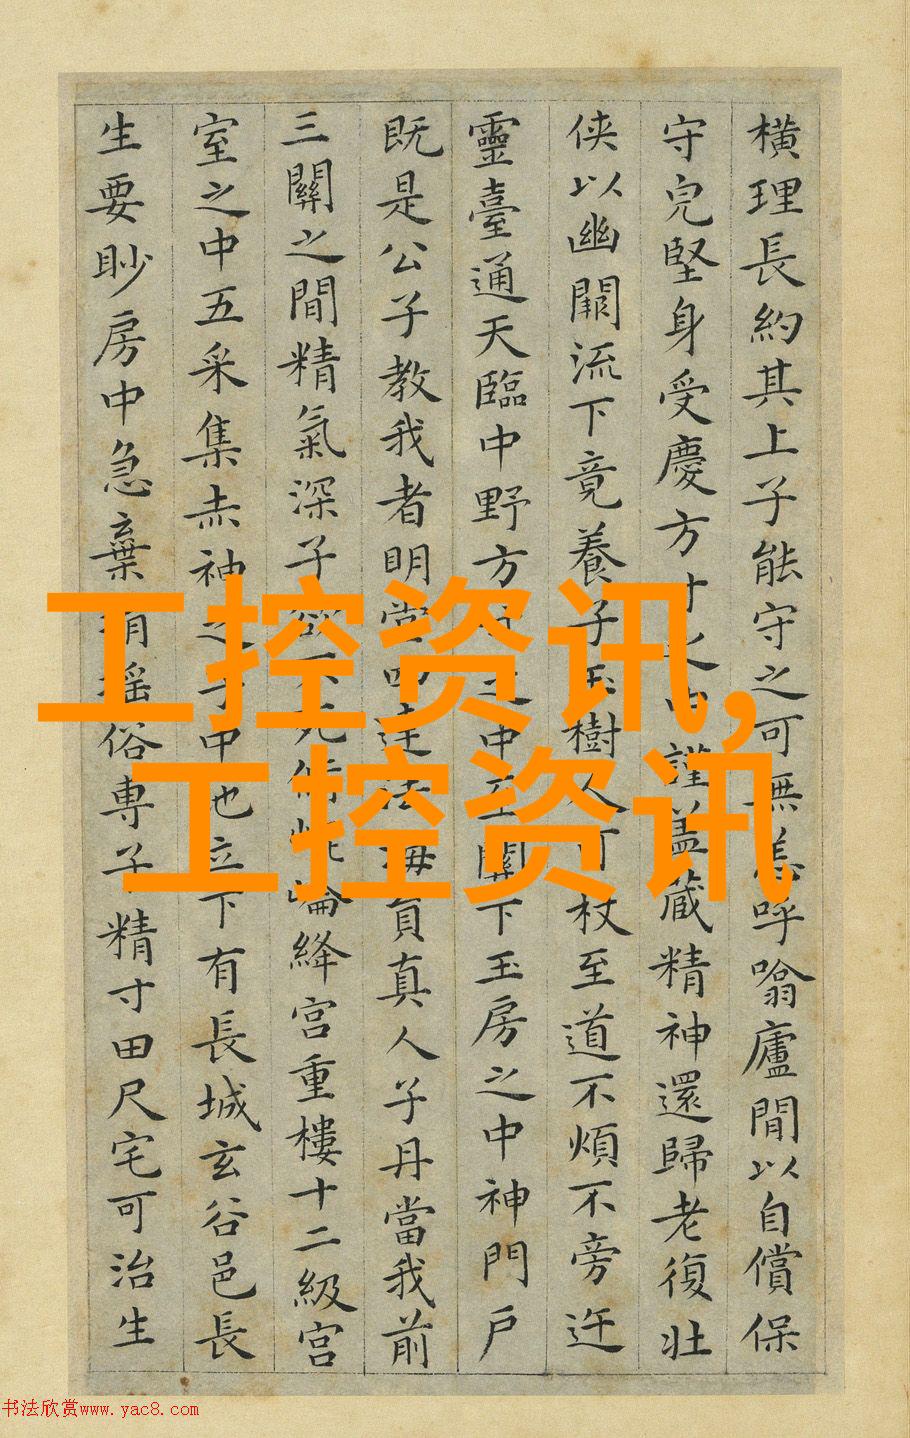 橫理長約其上子能守之可無恙呼噏廬間以自償保
守皃堅身受慶方寸之中謹盖藏精神還歸老復壯
侠以幽闕流下竟養子玉樹人可杖至道不煩不旁迕
靈臺通天臨中野方寸之中至關下玉房之中神門戶
既是公子教我者明堂四達法海員真人子丹當我前
三關之間精氣深子欲不死脩崐崘絳宮重樓十二級宮
室之中五采集赤神之子中也立下有長城玄谷邑長
生要眇房中急棄捐搖俗專子精寸田尺宅可治生
工控资讯,
工控资讯
书法欣赏www.yac8.com